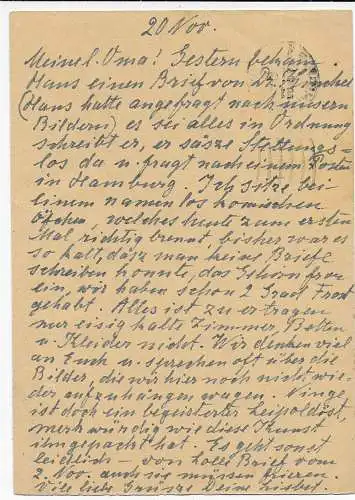 20 Nov.
Meine l. Oma! Gestern bekam
Hans einen Brief von Dr.
(Hans hatte angefragt nach unsern
Bildern) es sei alles in Ordnung
schreibt er, er sässe Stellungs=
los da u. fragt nach einem Posten
in Hamburg. Ich sitze bei
einem namenlos komischen
Öfchen, welches heute zum ersten
Mal richtig brennt, bisher war es
so kalt, dasz man keine Briefe
schreiben konnte, das Gehirn fror
ein, wir haben schon 2 Grad Frost
gehabt. Alles ist zu ertragen
nur eisig kalte Zimmer, Betten
u. Kleider nicht. Wir denken viel
an Euch u. sprechen oft über die
Bilder, die wir hier noch nicht wie-
der aufzuhängen wagen.
ist doch ein begeisterter
merkwürdig wie diese Kunst
ihn gepackt hat. Es geht sonst
leidlich - von Brief vom
2. Nov. auch sie müssen frieren.
Viele liebe Grüsse Deine